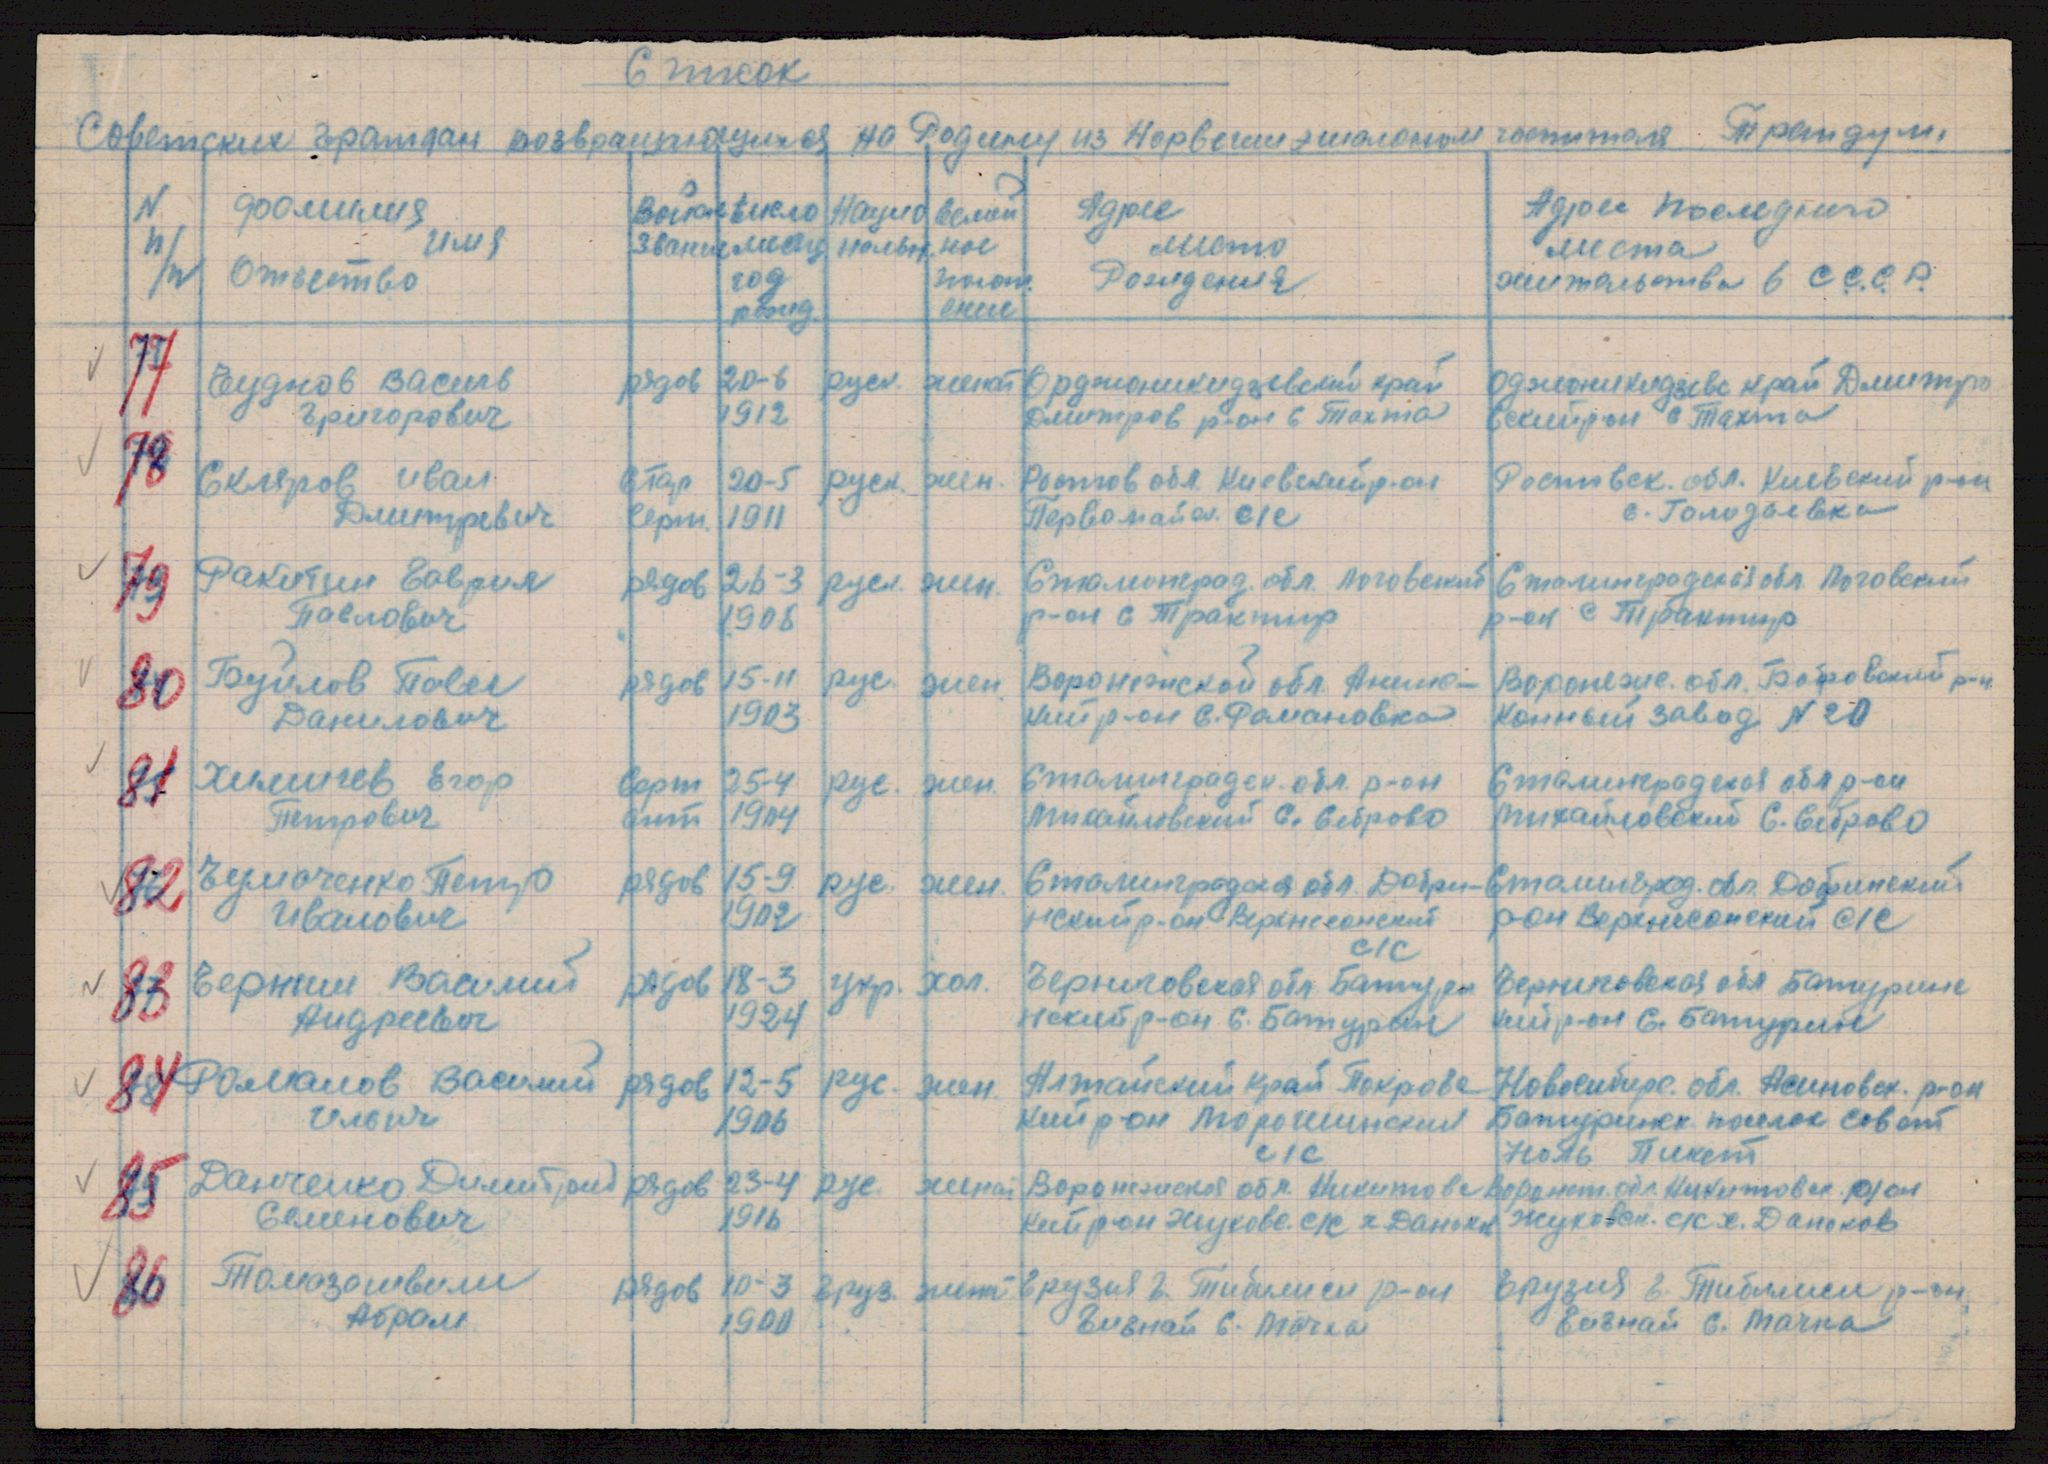 Список
Советских граждан возвращающихся на Родину из Норвегии эшалоном госпиталя Трандум.
N п/п Фамилия имя Отчество
Воен. звание
число месяц год рожд.
Нацио нальн.
семей ное полож ение
Адрес место Рождения
Адрес последнего места жительства в С.С.С.Р.
77 Чуднов Василь рядов 20-6 руск. женат Орджоникидзевский край Оджоникидзевс край Дмитро
Григорович 1912 Дмитров р-он с Тахта вский рон с Тахта
78 Скляров Иван Стар 20-5 руск. жен. Ростов обл. Киевский р-он Ростовск. обл. Киевский р-он
Дмитревич Серж. 1911 Первомайск. с/с с. Голодаевка
79 Ракитин Гаврил рядов 26-3 руск. жен. Сталинград. обл. Логовский Сталинградская обл. Логовский
Павлович 1906 р-он с Трактир р-он с Трактир
80 Буйлов Павел рядов 15-11 рус. жен. Воронежской обл. Аннинс- Воронежс. обл. Бобровский р-н
Данилович 1903 кий р-он с. Романовка Конный завод N 20
81 Химичев Егор Серж 25-4 рус. жен. Сталинградск. обл. р-он Сталинградская обл р-он
Петрович ант 1904 Михайловский с. Себрово Михайловский с. Себрово
82 Чумаченко Петр рядов 15-9 рус. жен. Сталинградская обл. Добри- Сталинград. обл. Добринский
Иванович 1902 нский р-он Верхнесонский рон Верхнесонский с/с
с/с
83 Черныш Василий рядов 18-3 укр. хол. Черниговская обл Батури Черниговская обл Батуринс
Андреевич 1924 нский р-он с. Батурын кий р-он с. Батурин
84 Романов Василий рядов 12-5 рус. жен. Алтайский край Покровс Новосибирс. обл. Асиновск. р-он
Ильич 1906 кий р-он Морошинский Батуринск. поселок совет
с/с Ноль Пикет
85 Данченко Димитрий рядов 23-4 рус. женат Воронежской обл. Никитовс Воронеж. обл. Никитовск. р/он
Семенович 1916 кий р-он Жуковс. с/с х Даньков Жуковск. с/с х. Даноков
86 Томазашвили рядов 10-3 груз. женат Грузия г. Тибилиси р-он Грузия г. Тибилиси р-он
Абрам 1900 с. Мачха с. Мачха